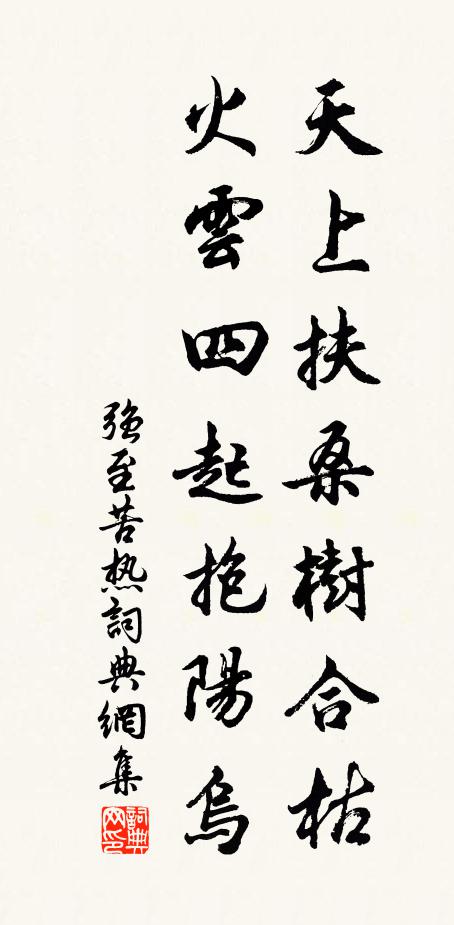 天上扶桑樹合枯
火雲四起抱陽烏
強至苦热詞典網集
詞典網印